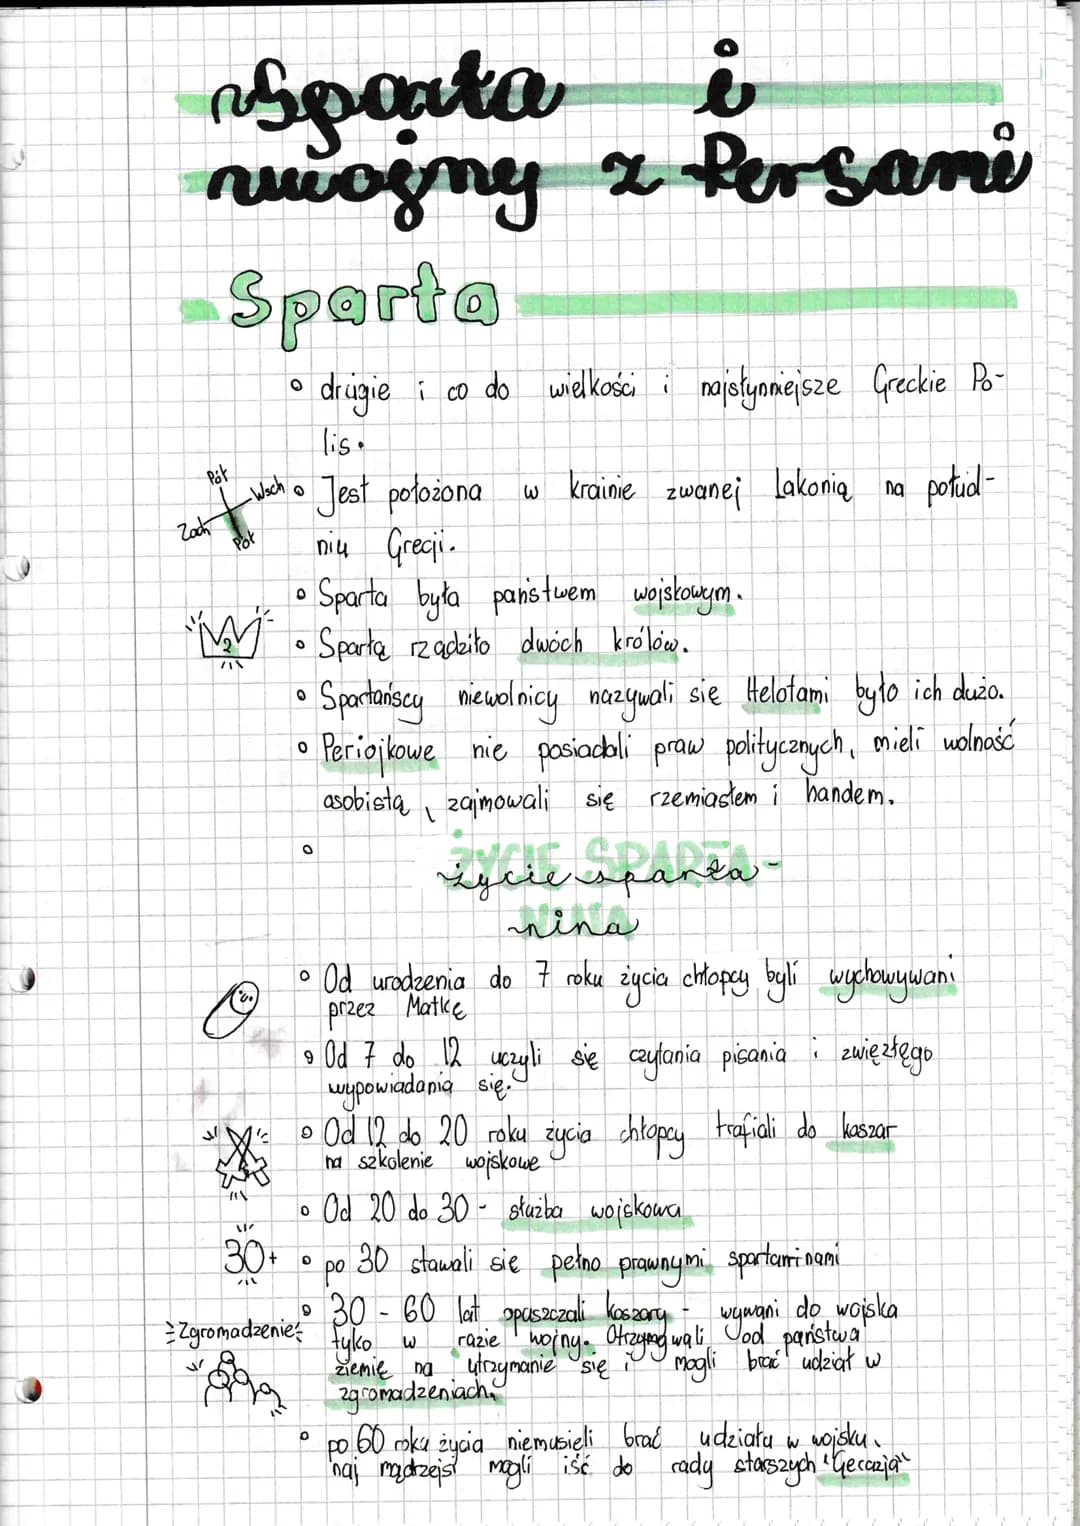 Sparta i
wojny z Persami
Sparta
drugie i co do wielkości i najsłynniejsze Greckie Po-
lis.
Półn
Wsch
Zach
Jest położona w krainie zwanej Lakonią na połud-
niu Grecji.
Sparta była państwem wojskowym.
2
Spartą rządziło dwóch królów.
Spartańscy niewolnicy nazywali się Helotami było ich dużo.
Periojkowe nie posiadali praw politycznych, mieli wolność
osobistą, zajmowali się rzemiosłem i handem.
ŻYCIE SPARTA-
życie sparta-
nina
Od urodzenia do 7 roku życia chłopcy byli wychowywani
przez Matkę
Od 7 do 12 uczyli się czytania pisania i zwięzłego
wypowiadania się.
Od 12 do 20 roku życia chłopcy trafiali do koszar
na szkolenie wojskowe
Od 20 do 30 - służba wojskowa
30+
po 30 stawali się pełno prawnymi spartaninami
30 - 60 lat opuszczali koszary - wywani do wojska
Zgromadzenie
tyko w razie wojny. Otrzymywali od państwa
ziemię na utrzymanie się i mogli brać udział w
zgromadzeniach.
po 60 roku życia niemusieli brać udziału w wojsku.
naj mądrzejsi mogli iść do rady starszych